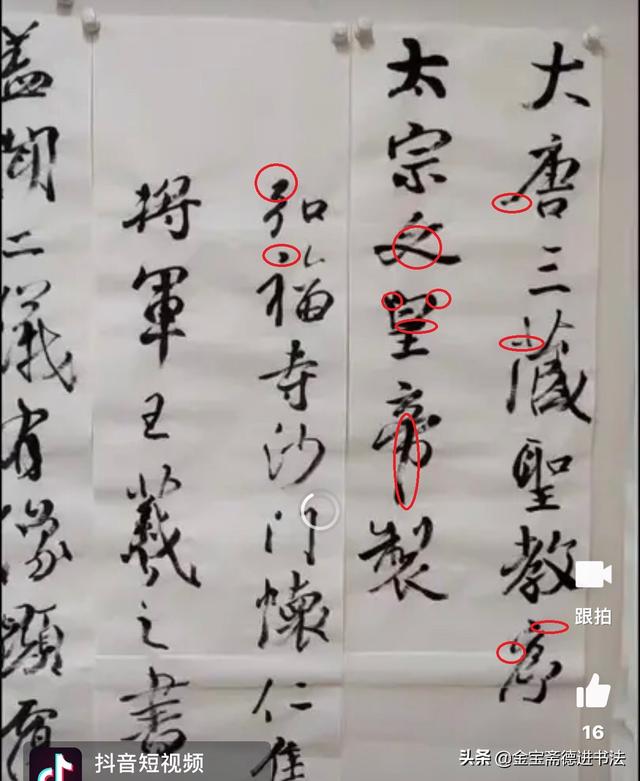 大唐三藏聖教序
太宗文皇帝製
弘福寺沙門懷仁集
將軍王羲之書
蓋聞二儀有像顯覆
跟拍
16
抖音短视频
头条 @金宝斋德进书法